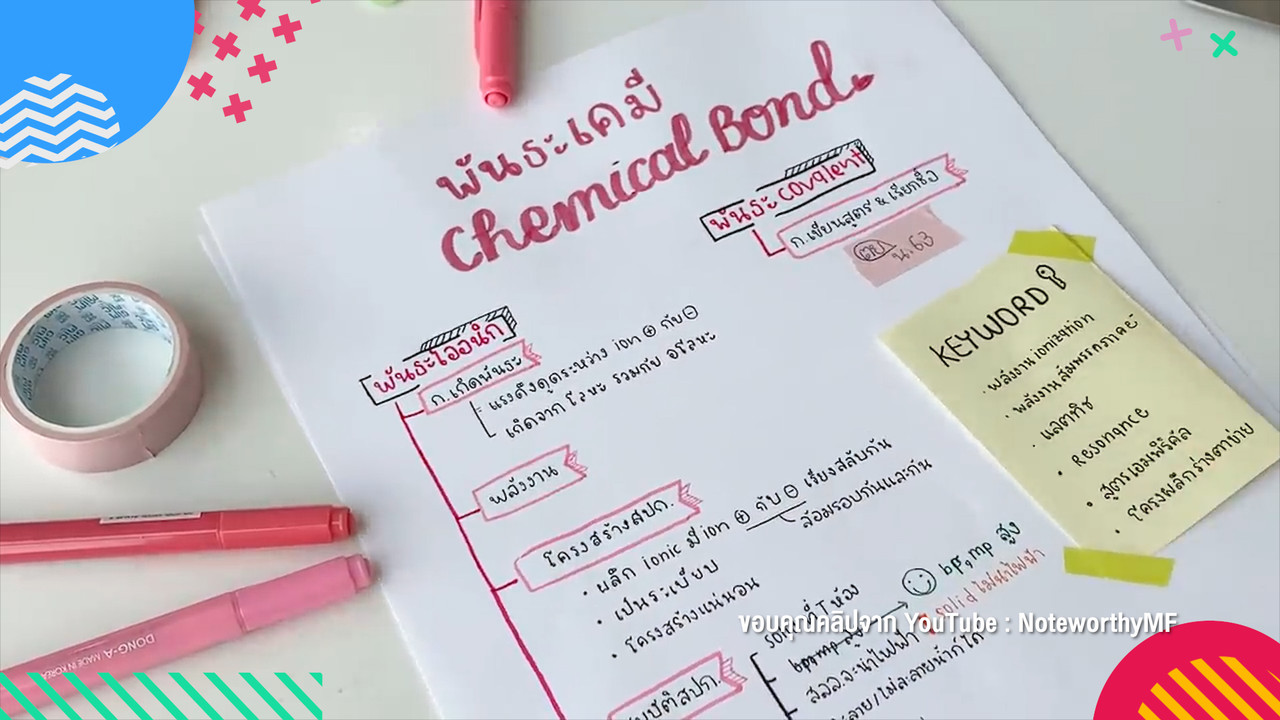 พันธะเคมี
Chemical Bond
พันธะ covalent
ก.เขียนสูตร & เรียกชื่อ
น.63
พันธะไอออนิก
ก.เกิดพันธะ
แรงดึงดูดระหว่าง ion ⊕ กับ ⊖
เกิดจาก โลหะ รวมกับ อโลหะ
พลังงาน
โครงสร้างสปก.
• ผลึก ionic มี ion ⊕ กับ ⊖ เรียงสลับกัน
ล้อมรอบกันและกัน
• เป็นระเบียบ
• โครงสร้างแน่นอน
solid ที่ T ห้อง
bp,mp สูง
solid ไม่นำไฟฟ้า
สลล.จะนำไฟฟ้า
KEYWORD
• พลังงาน ionization
• พลังงาน สัมพรรคภาคย
• แลตทิซ
• Resonance
• สูตรเอมพิริคัล
• โครงผลึกร่างตาข่าย
ขอบคุณคลิปจาก YouTube : NoteworthyMF
DONG-A MADE IN KOREA